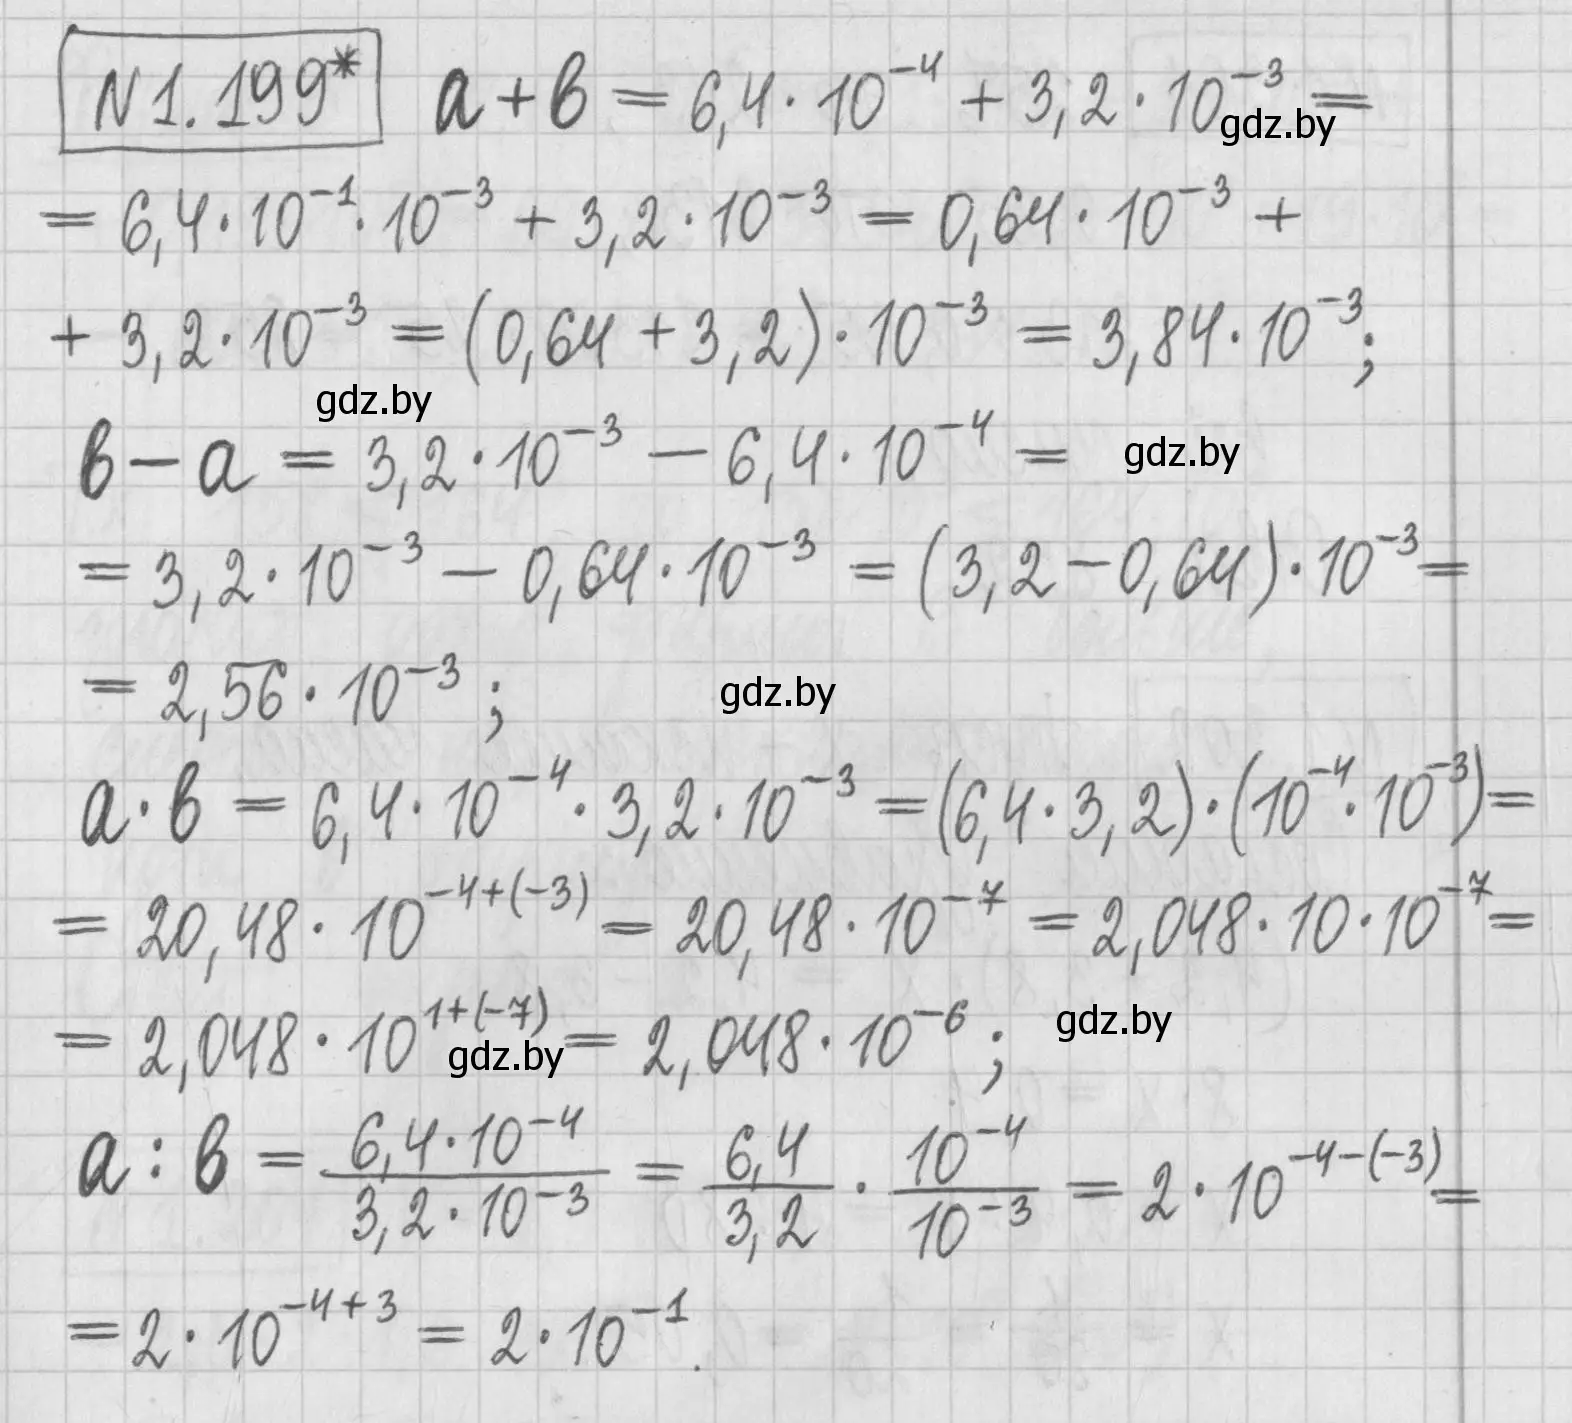 N 1.199* a + b = 6,4 · 10⁻⁴ + 3,2 · 10⁻³ =
gdz.by
= 6,4 · 10⁻¹ · 10⁻³ + 3,2 · 10⁻³ = 0,64 · 10⁻³ +
+ 3,2 · 10⁻³ = (0,64 + 3,2) · 10⁻³ = 3,84 · 10⁻³;
gdz.by
b − a = 3,2 · 10⁻³ − 6,4 · 10⁻⁴ =
gdz.by
= 3,2 · 10⁻³ − 0,64 · 10⁻³ = (3,2 − 0,64) · 10⁻³ =
= 2,56 · 10⁻³ ;
gdz.by
a · b = 6,4 · 10⁻⁴ · 3,2 · 10⁻³ = (6,4 · 3,2) · (10⁻⁴ · 10⁻³) =
= 20,48 · 10⁻⁴⁺⁽⁻³⁾ = 20,48 · 10⁻⁷ = 2,048 · 10 · 10⁻⁷ =
= 2,048 · 10¹⁺⁽⁻⁷⁾ = 2,048 · 10⁻⁶ ;
gdz.by
gdz.by
a : b = (6,4 · 10⁻⁴)/(3,2 · 10⁻³) = 6,4/3,2 · 10⁻⁴/10⁻³ = 2 · 10⁻⁴⁻⁽⁻³⁾ =
= 2 · 10⁻⁴⁺³ = 2 · 10⁻¹.